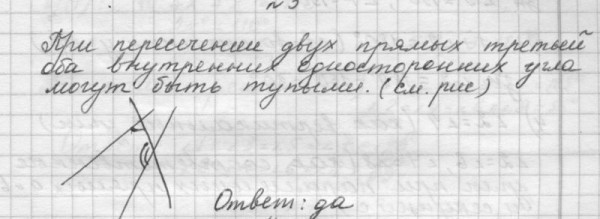 №3
При пересечении двух прямых третьей
оба внутренних односторонних угла
могут быть тупыми. (см. рис)
Ответ: да